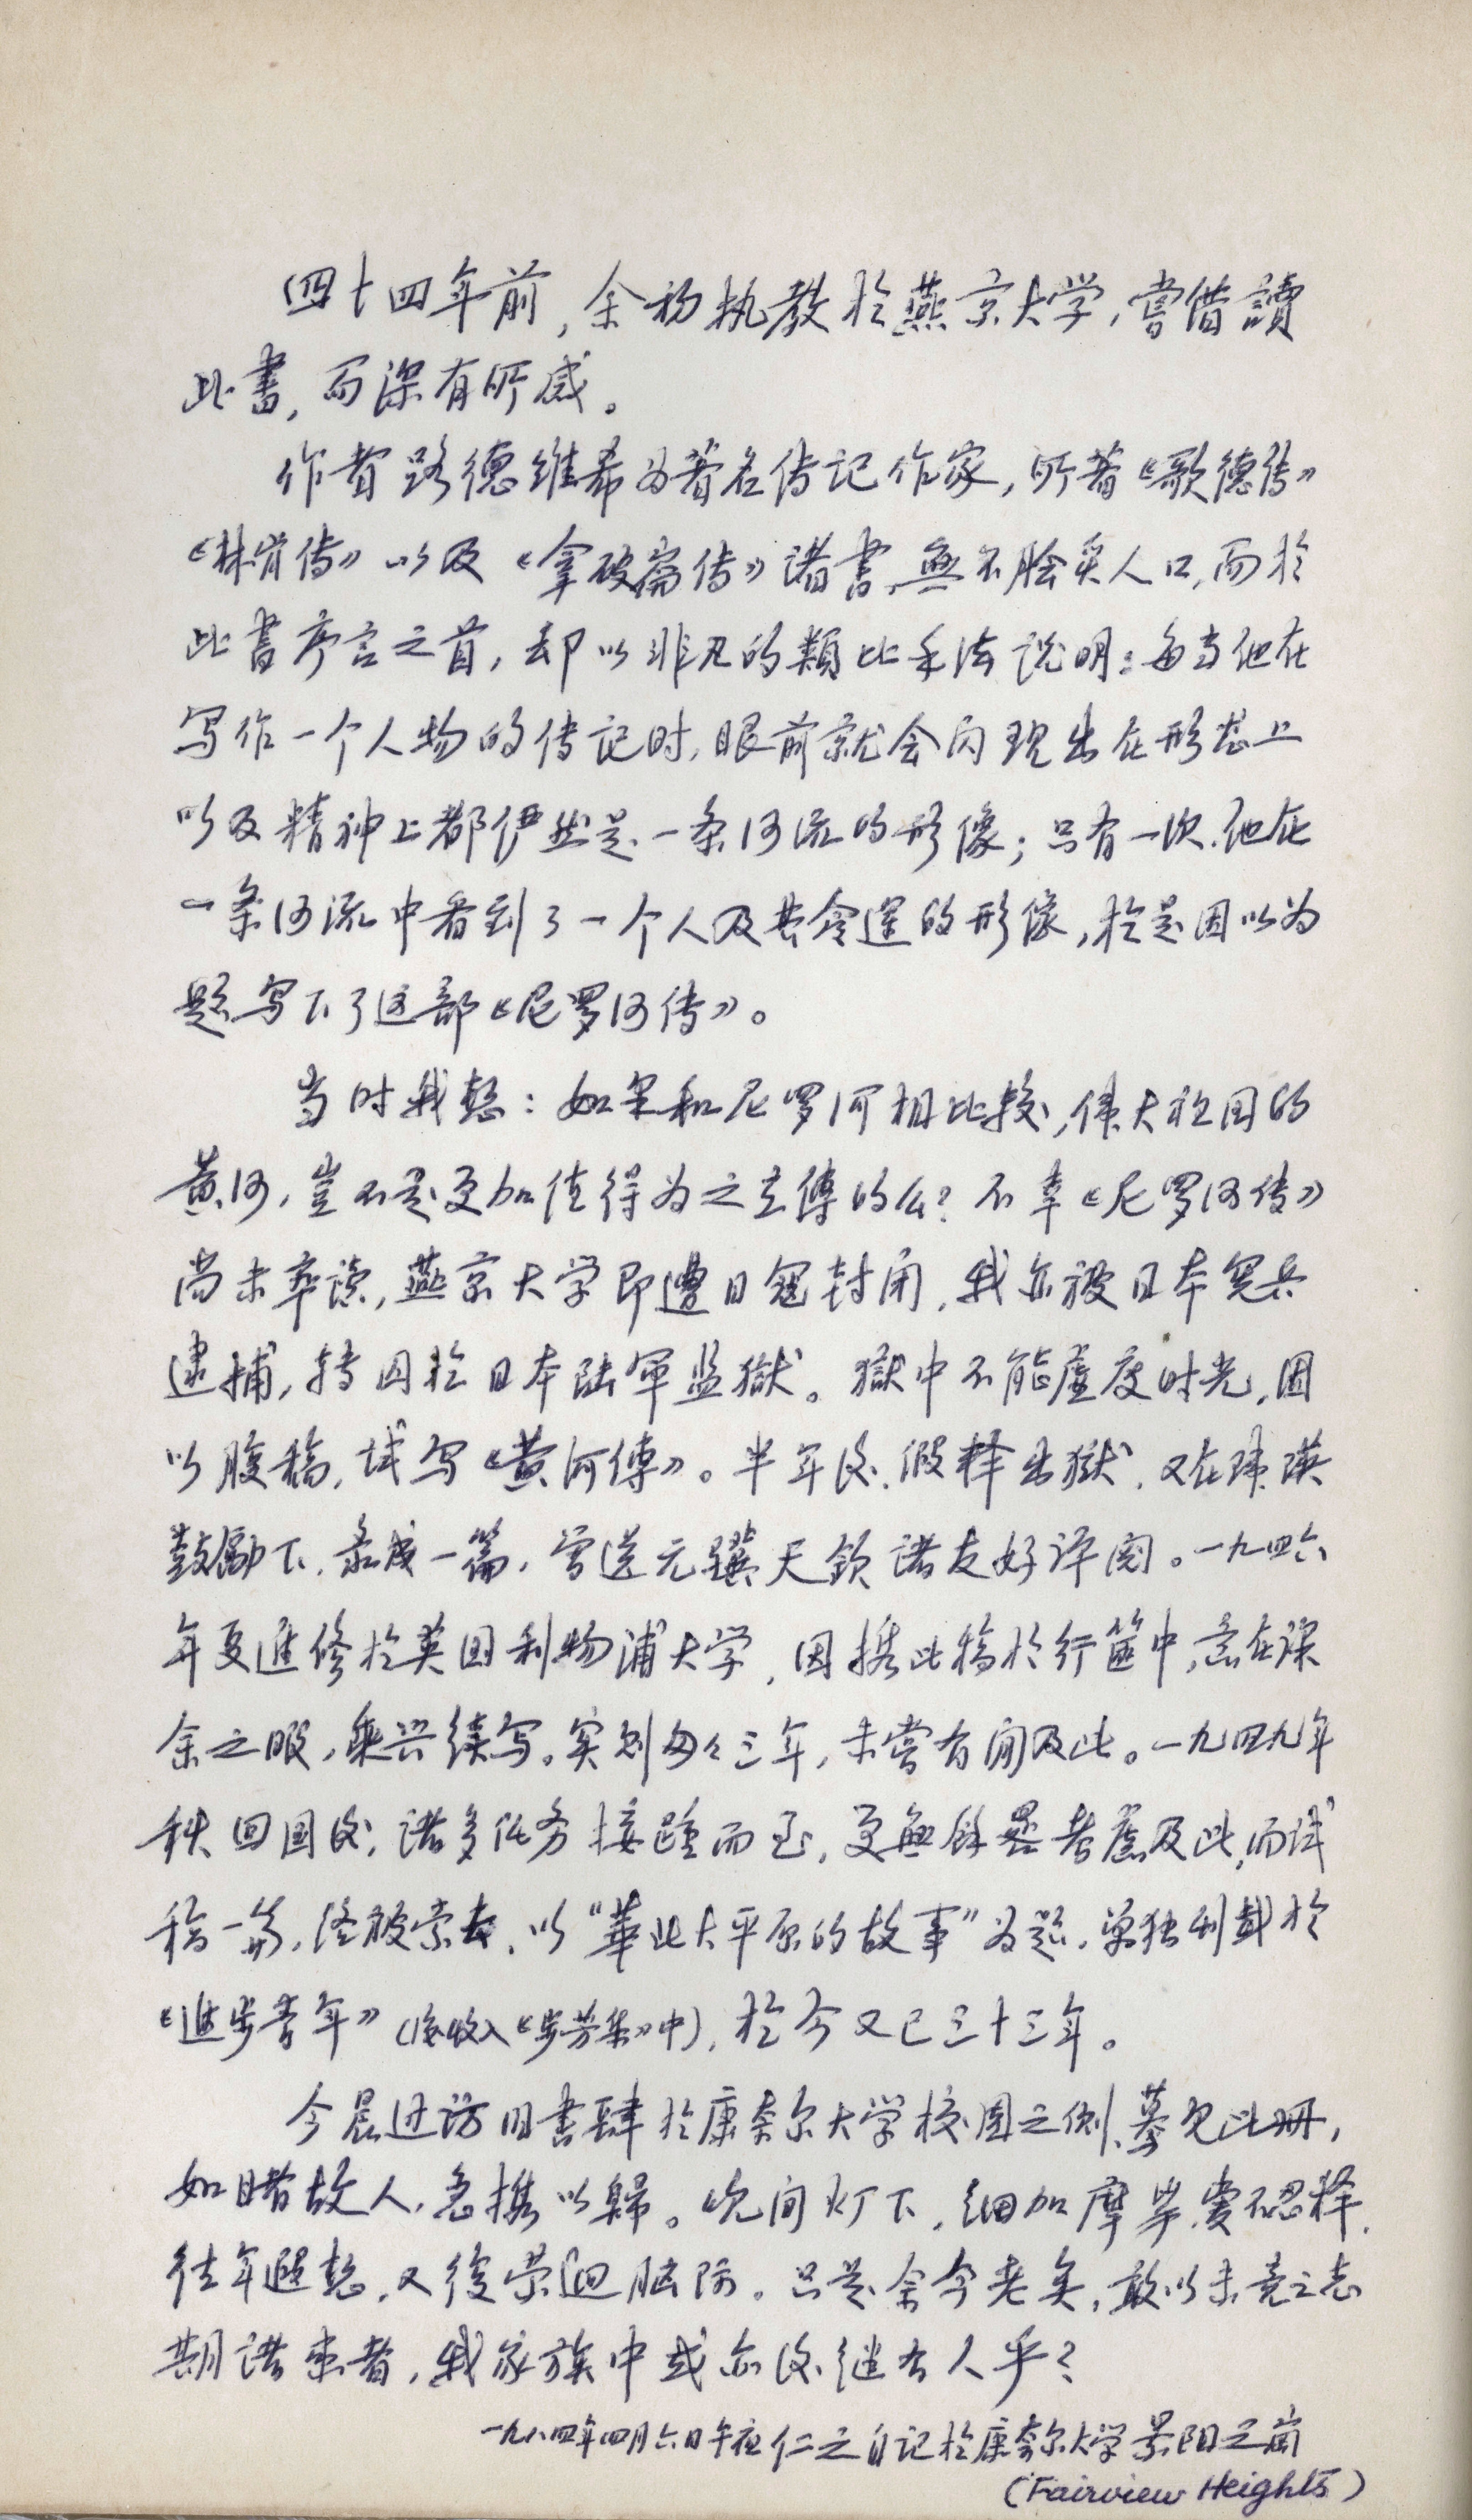 四十四年前,余初执教於燕京大学,嘗借讀
此書,而深有所感。
作者路德维希为著名传记作家,所著《歌德传》
《林肯传》以及《拿破崙传》诸書,無不脍炙人口,而於
此書序言之首,却以非凡的類比手法说明:每当他在
写作一个人物的传记时,眼前就会闪现出在形态上
以及精神上都俨然是一条河流的形像;只有一次,他在
一条河流中看到了一个人及其命運的形像,於是因以为
题写下了这部《尼罗河传》。
当时我想:如果和尼罗河相比较,偉大祖国的
黄河,豈不是更加值得为之立傳的么?不幸《尼罗河传》
尚未卒读,燕京大学即遭日寇封闭,我亦被日本宪兵
逮捕,转囚於日本陆軍监獄。獄中不能虚度时光,因
以腹稿,试写《黄河傳》。半年后,假释出獄,又在瑋瑛
鼓勵下,录成一篇,曾送元驥天钦诸友好评阅。一九四六
年夏進修於英国利物浦大学,因携此稿於行篋中,意在课
余之暇,乘兴续写。实则匆匆三年,未嘗有闲及此。一九四九年
秋回國后,诸多任务接踵而至,更無餘晷考慮及此,而试
稿一篇,终被索去,以“華北大平原的故事”为题,单独刊载於
《進步青年》(后收入《步芳集》中),於今又已三十三年。
今晨过访旧書肆於康奈尔大学校园之侧,蓦见此册,
如睹故人,急携以歸。晚间灯下,细加摩挲,爱不忍释,
往年遐想,又復縈迴脑际。只是余今老矣,敢以未竟之志
期诸来者,我家族中或亦后继有人乎?
一九八四年四月六日午夜 仁之自记於康奈尔大学景阳之崗
(Fairview Heights)